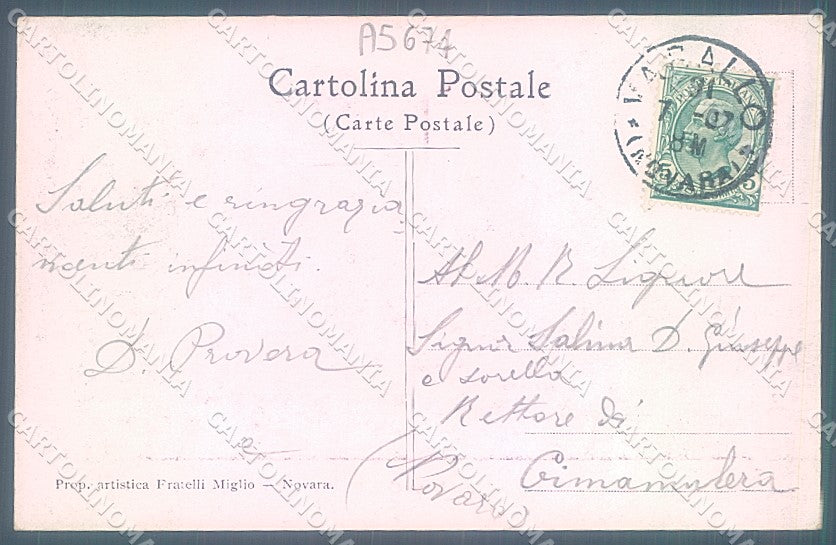 A5671
Cartolina Postale
(Carte Postale)
VARALLO
7 -07
8M
(NOVARA)
5
Saluti e ringrazia
menti infiniti.
D. Provera
Al M. R. Signore
Signor Salina D. Giuseppe
e sorella
Rettore di
Cimamulera
(Novara
Prop. artistica Fratelli Miglio — Novara.
CARTOLINOMANIA